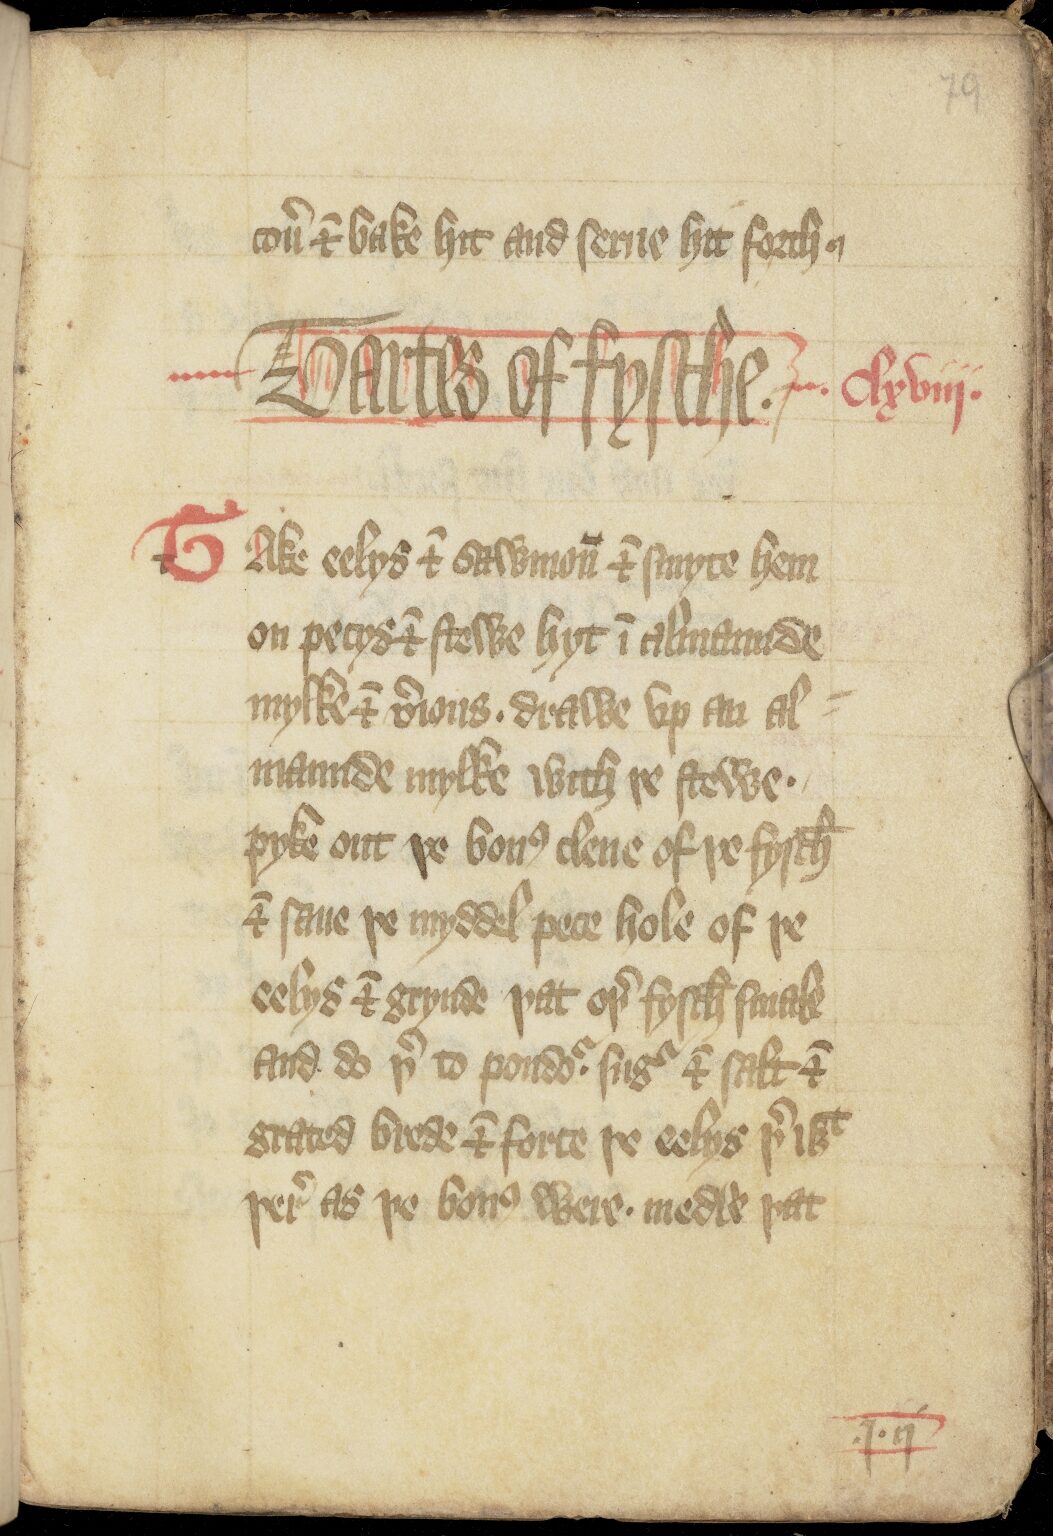 79
cou̾ & bake hit and serue hit forth.
Tartes of fysche. Clxviij.
TAke eelys & sawmoū & smyte hem
on pecys & stewe hyt ī almaunde
mylke & v̾ious. drawe vp an al=
maunde mylke with þe stewe.
pyke out þe bonꝰ clene of þe fysch̄
& saue þe myddel pece hole of þe
eelys & grynde þat oþ̾ fysch̄ smale
and do þ̾ to poudoᷣ. sugᷣ & salt &
grated brede & force þe eelys þ̾ wᵗ
þer̾ as þe bonꝰ were. medle þat
.j. ij